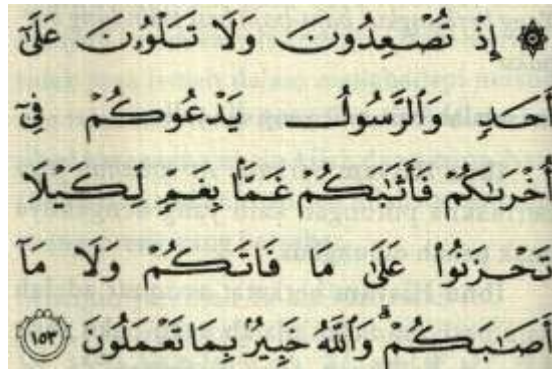 ۞ إِذْ تُصْعِدُونَ وَلَا تَلْوُۥنَ عَلَىٰٓ
أَحَدٍ وَٱلرَّسُولُ يَدْعُوكُمْ فِىٓ
أُخْرَىٰكُمْ فَأَثَٰبَكُمْ غَمًّۢا بِغَمٍّ لِّكَيْلَا
تَحْزَنُوا۟ عَلَىٰ مَا فَاتَكُمْ وَلَا مَآ
أَصَٰبَكُمْ ۗ وَٱللَّهُ خَبِيرٌۢ بِمَا تَعْمَلُونَ ﴿١٥٣﴾